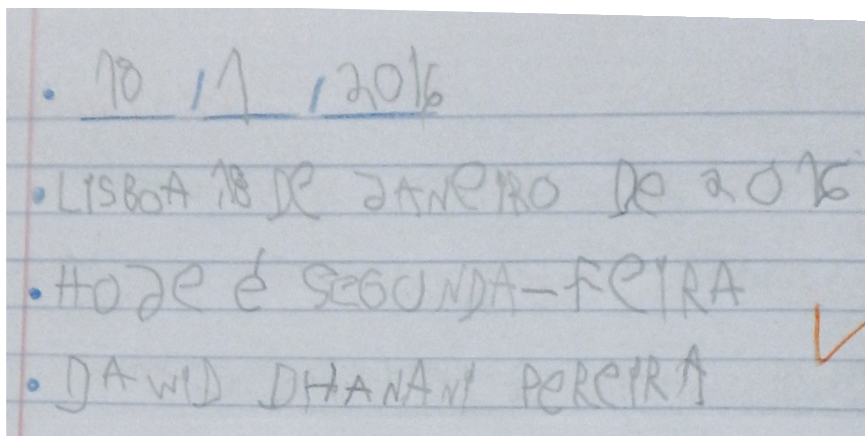 • 18 / 1 / 2016
• LISBOA 18 De JANeIRO De 2016
• HOJe é SeGUNDA-FeIRA
• DAWID DHANANI PeReIRA